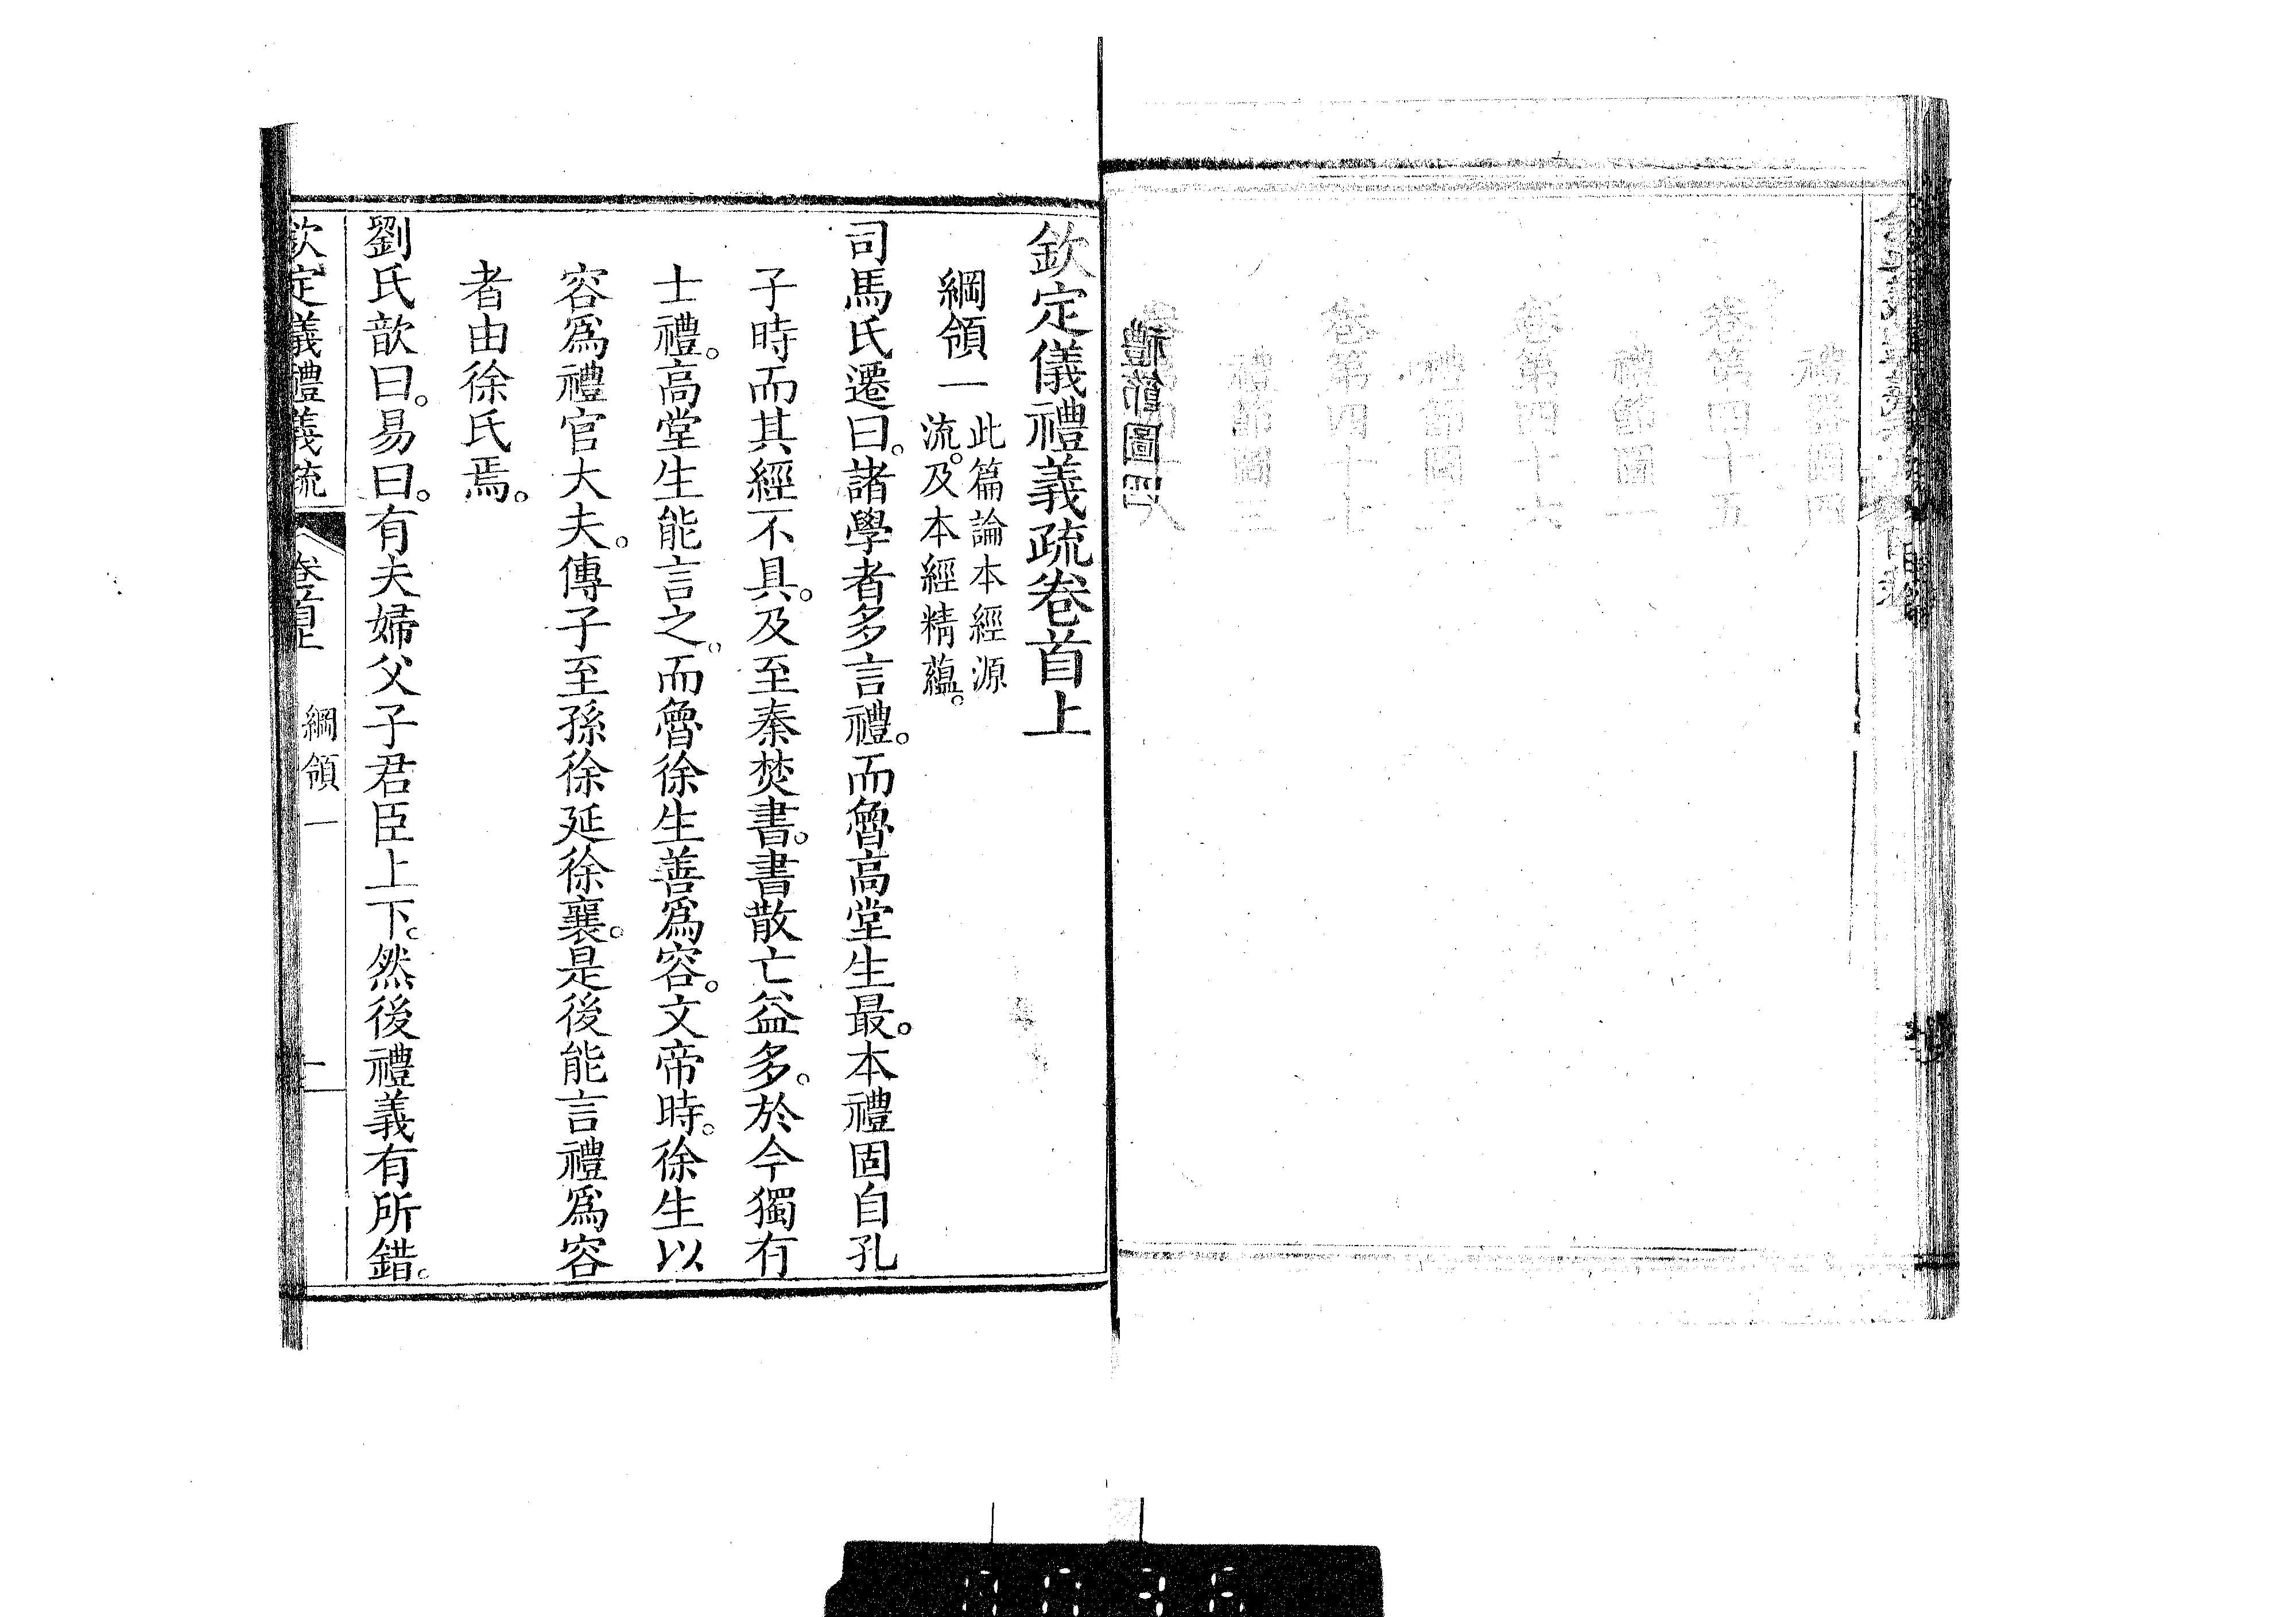 禮節圖四
欽定儀禮義疏卷首上
綱領一
此篇論本經源
流。及本經精蘊。
司馬氏遷曰。諸學者多言禮。而魯高堂生最。本禮固自孔
子時而其經不具。及至秦焚書。書散亡益多。於今獨有
士禮。高堂生能言之。而魯徐生善爲容。文帝時。徐生以
容爲禮官大夫。傳子至孫徐延徐襄。是後能言禮爲容
者由徐氏焉。
劉氏歆曰。易曰。有夫婦父子君臣上下。然後禮義有所錯。
欽定儀禮義疏 卷首上 綱領一